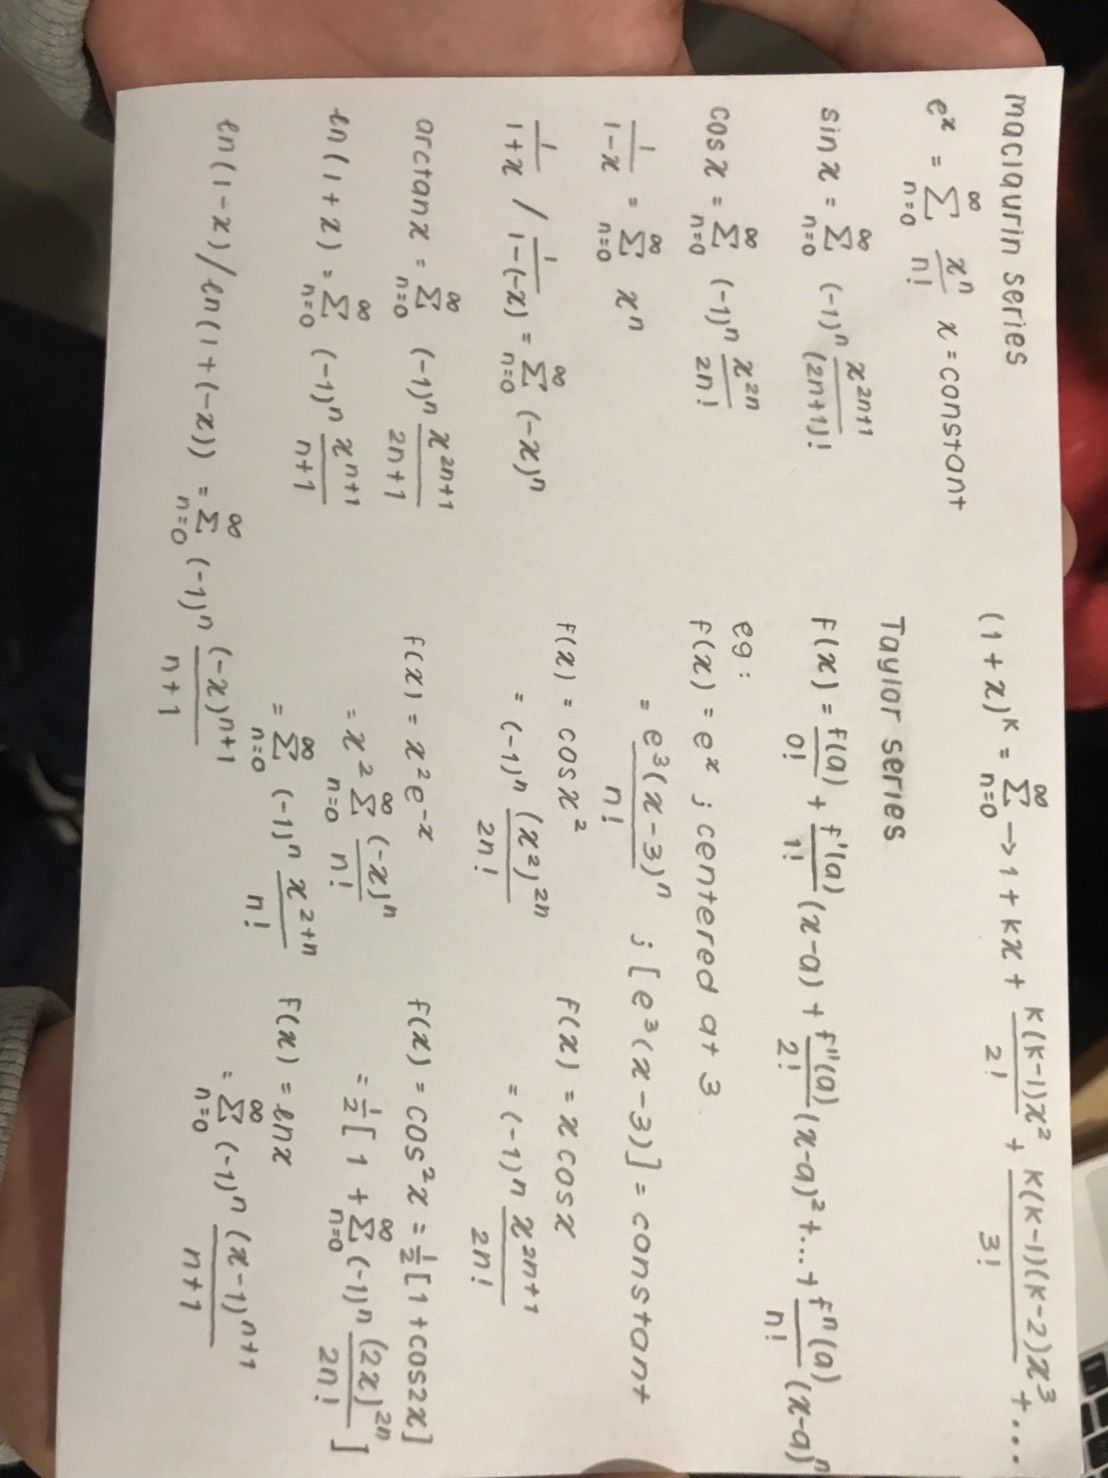 maclaurin series
e^x = ∞Σn=0 x^n/n! x = constant
sin x = ∞Σn=0 (-1)^n x^2n+1/(2n+1)!
cos x = ∞Σn=0 (-1)^n x^2n/2n!
1/1-x = ∞Σn=0 x^n
1/1+x / 1/1-(-x) = ∞Σn=0 (-x)^n
arctan x = ∞Σn=0 (-1)^n x^2n+1/2n+1
ln(1+x) = ∞Σn=0 (-1)^n x^n+1/n+1
ln(1-x)/ln(1+(-x)) = ∞Σn=0 (-1)^n (-x)^n+1/n+1
(1+x)^k = ∞Σn=0 → 1 + kx + k(k-1)x^2/2! + k(k-1)(k-2)x^3/3! + ...
Taylor series
f(x) = f(a)/0! + f'(a)/1! (x-a) + f''(a)/2! (x-a)^2 + ... + f^n(a)/n! (x-a)^n
eg:
f(x) = e^x ; centered at 3
= e^3(x-3)^n/n! ; [e^3(x-3)] = constant
f(x) = cos x^2
= (-1)^n (x^2)^2n/2n!
f(x) = x cos x
= (-1)^n x^2n+1/2n!
f(x) = x^2e^-x
= x^2 ∞Σn=0 (-x)^n/n!
= ∞Σn=0 (-1)^n x^2+n/n!
f(x) = cos^2x = 1/2[1+cos2x]
= 1/2[1 + ∞Σn=0 (-1)^n (2x)^2n/2n!]
f(x) = ln x
= ∞Σn=0 (-1)^n (x-1)^n+1/n+1